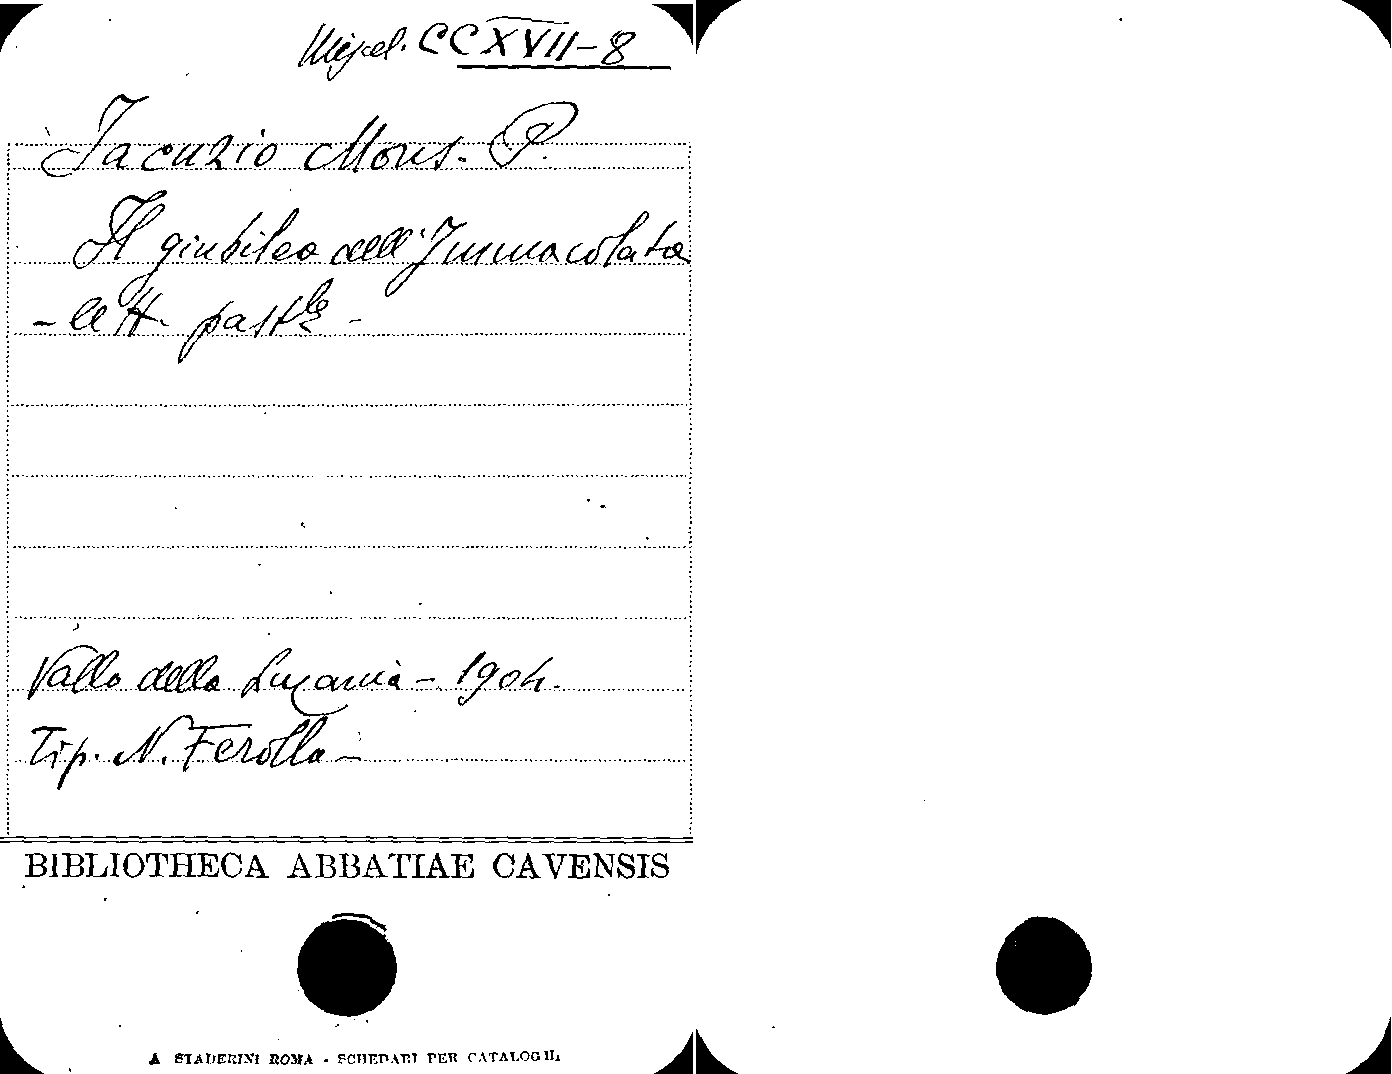 Miscel. CCXVII-8
Jacuzio Mons. P.
Il giubileo dell'Immacolata
- lett. past.le -
Vallo della Lucania - 1904.
Tip. N. Ferolla -
BIBLIOTHECA ABBATIAE CAVENSIS
A STADERINI ROMA - SCHEDARI PER CATALOGHI